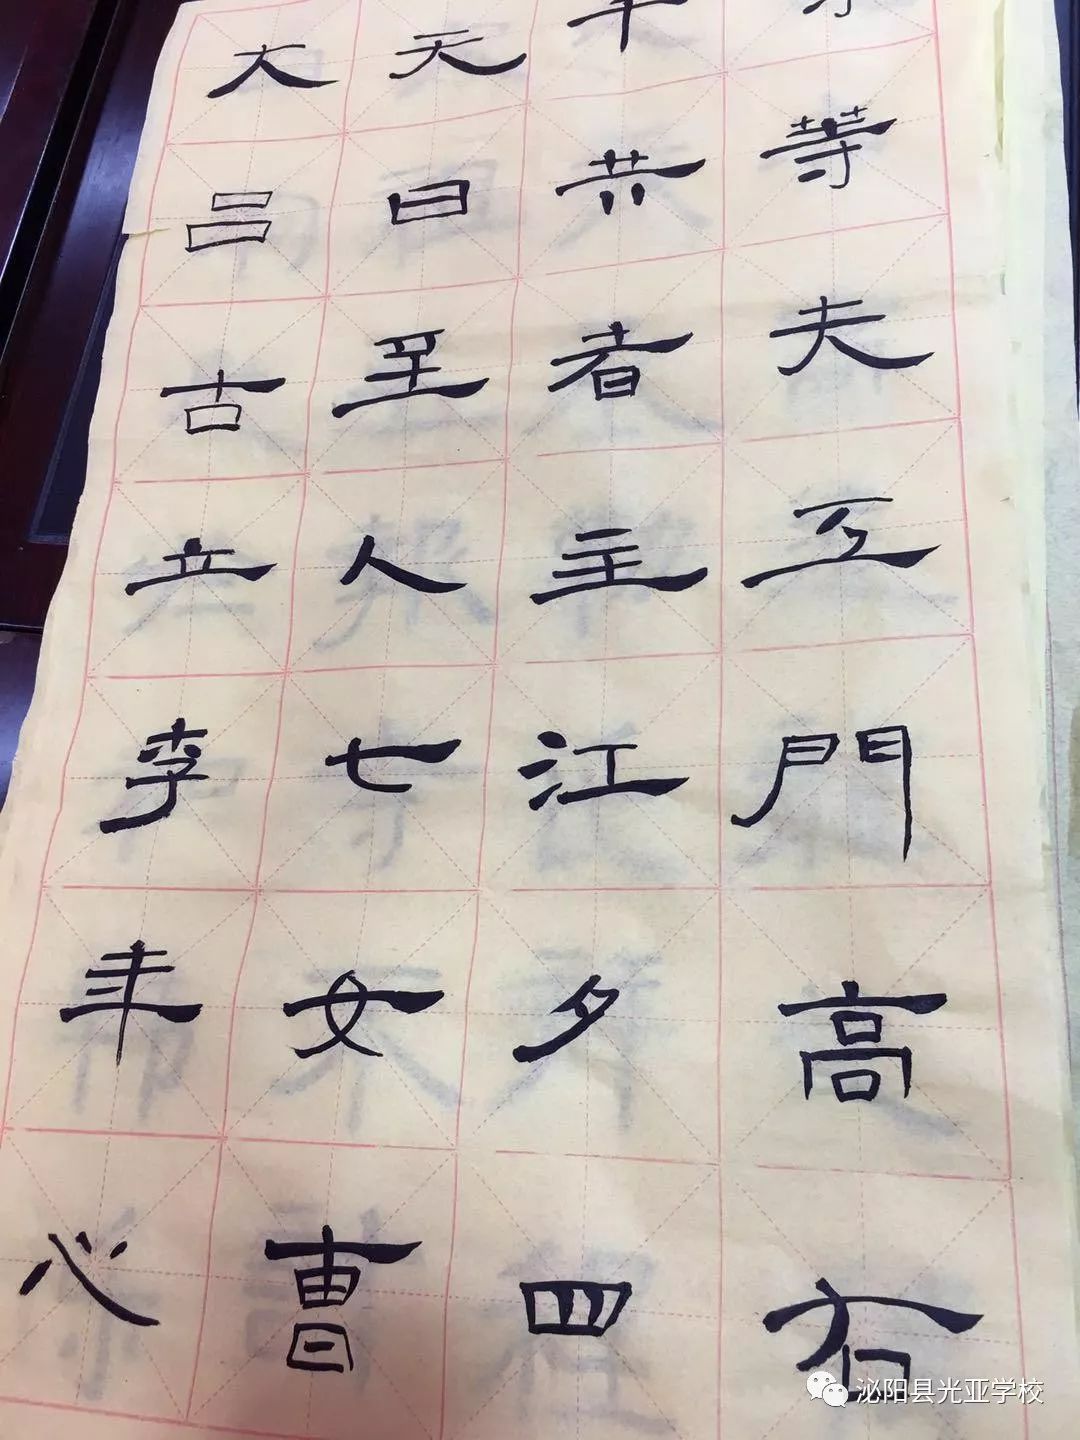 等夫門高右
共者主江夕四
天日至人七女曹
大吕古立李年心
泌阳县光亚学校